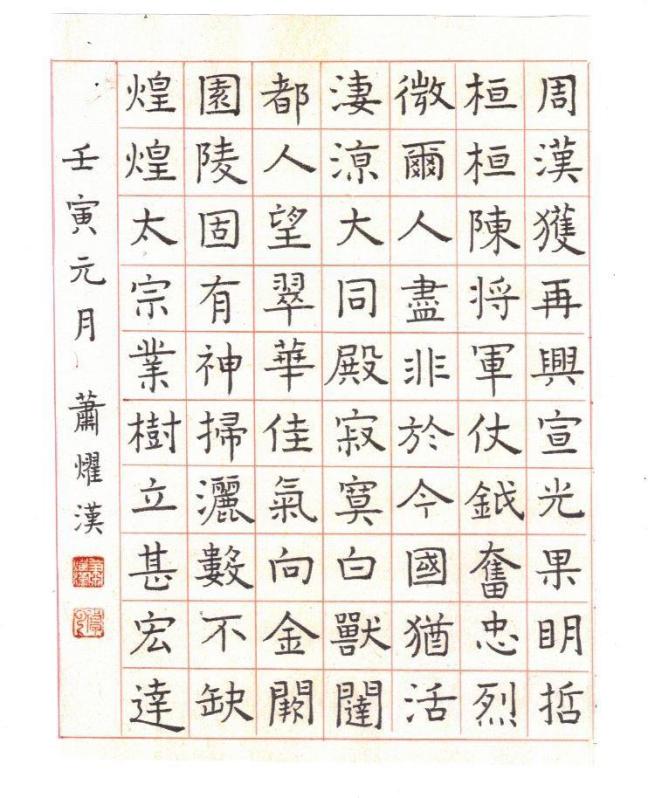 周漢獲再興宣光果明哲
桓桓陳将軍仗鉞奮忠烈
微爾人盡非於今國猶活
淒涼大同殿寂寞白獸闥
都人望翠華佳氣向金闕
園陵固有神掃灑數不缺
煌煌太宗業樹立甚宏達
壬寅元月 蕭燿漢